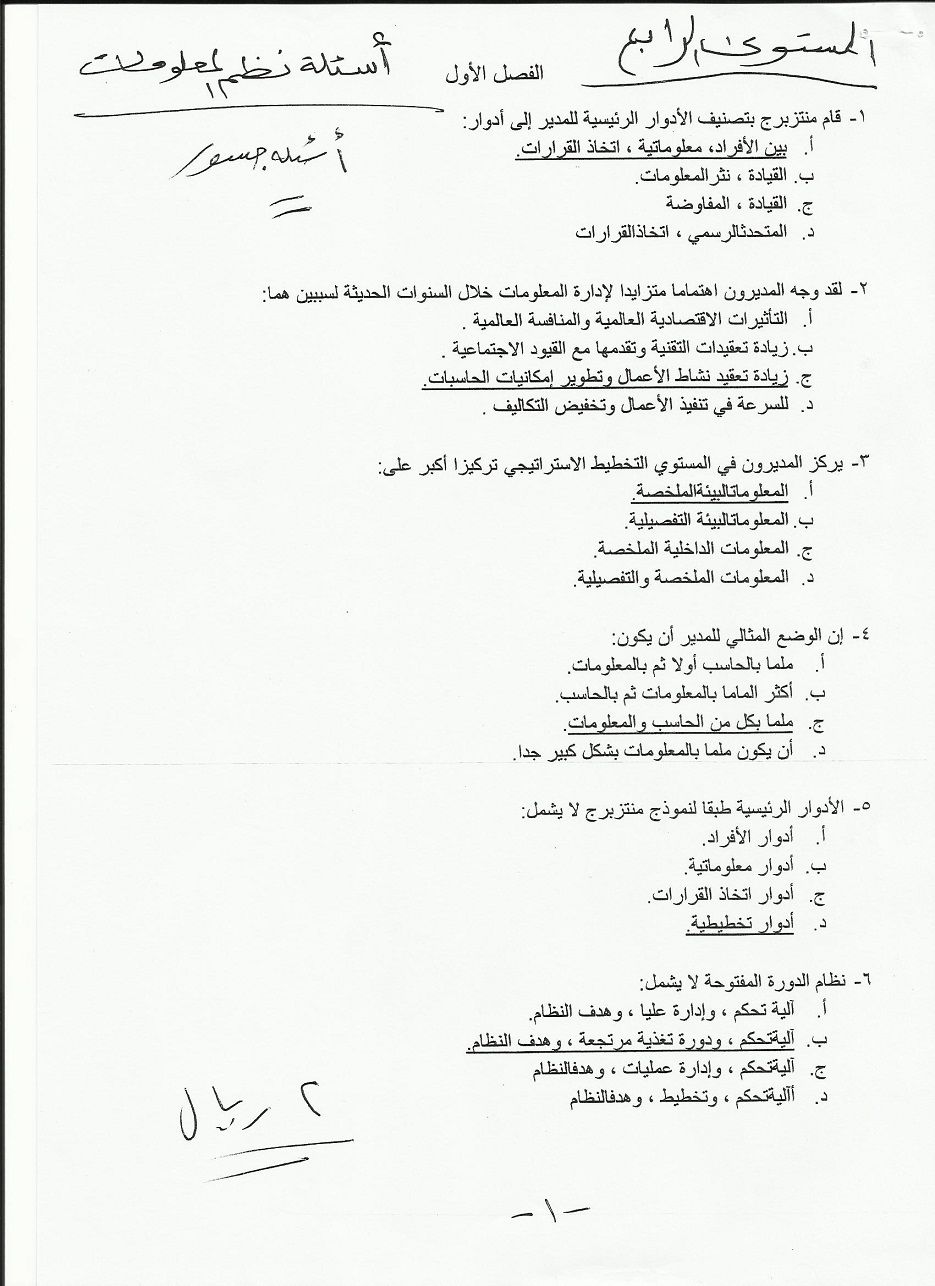 المستوى الرابع
الفصل الأول
أسئلة نظم المعلومات
أسئلة جسور
١- قام منتزبرج بتصنيف الأدوار الرئيسية للمدير إلى أدوار:
أ. بين الأفراد، معلوماتية ، اتخاذ القرارات.
ب. القيادة ، نثرالمعلومات.
ج. القيادة ، المفاوضة
د. المتحدثالرسمي ، اتخاذالقرارات
٢- لقد وجه المديرون اهتماما متزايدا لإدارة المعلومات خلال السنوات الحديثة لسببين هما:
أ. التأثيرات الاقتصادية العالمية والمنافسة العالمية .
ب. زيادة تعقيدات التقنية وتقدمها مع القيود الاجتماعية .
ج. زيادة تعقيد نشاط الأعمال وتطوير إمكانيات الحاسبات.
د. للسرعة في تنفيذ الأعمال وتخفيض التكاليف .
٣- يركز المديرون في المستوي التخطيط الاستراتيجي تركيزا أكبر على:
أ. المعلوماتالبيئةالملخصة.
ب. المعلوماتالبيئة التفصيلية.
ج. المعلومات الداخلية الملخصة.
د. المعلومات الملخصة والتفصيلية.
٤- إن الوضع المثالي للمدير أن يكون:
أ. ملما بالحاسب أولا ثم بالمعلومات.
ب. أكثر الماما بالمعلومات ثم بالحاسب.
ج. ملما بكل من الحاسب والمعلومات.
د. أن يكون ملما بالمعلومات بشكل كبير جدا.
٥- الأدوار الرئيسية طبقا لنموذج منتزبرج لا يشمل:
أ. أدوار الأفراد.
ب. أدوار معلوماتية.
ج. أدوار اتخاذ القرارات.
د. أدوار تخطيطية.
٦- نظام الدورة المفتوحة لا يشمل:
أ. آلية تحكم ، وإدارة عليا ، وهدف النظام.
ب. آليةتحكم ، ودورة تغذية مرتجعة ، وهدف النظام.
ج. آليةتحكم ، وإدارة عمليات ، وهدفالنظام
د. أآليةتحكم ، وتخطيط ، وهدفالنظام
٢ ريال
-١-